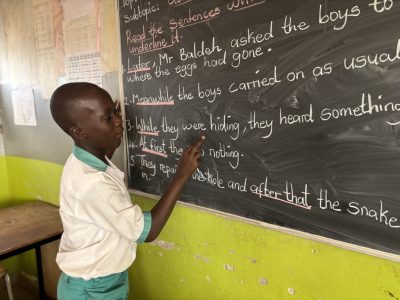 Topic:
Subtopic:
Read the Sentences
underline it.
1. Later, Mr Baldeh asked the boys to
where the eggs had gone.
2. Meanwhile the boys carried on as usual
3. While they were hiding, they heard something
4. At first the nothing.
5. They hole and after that the snake